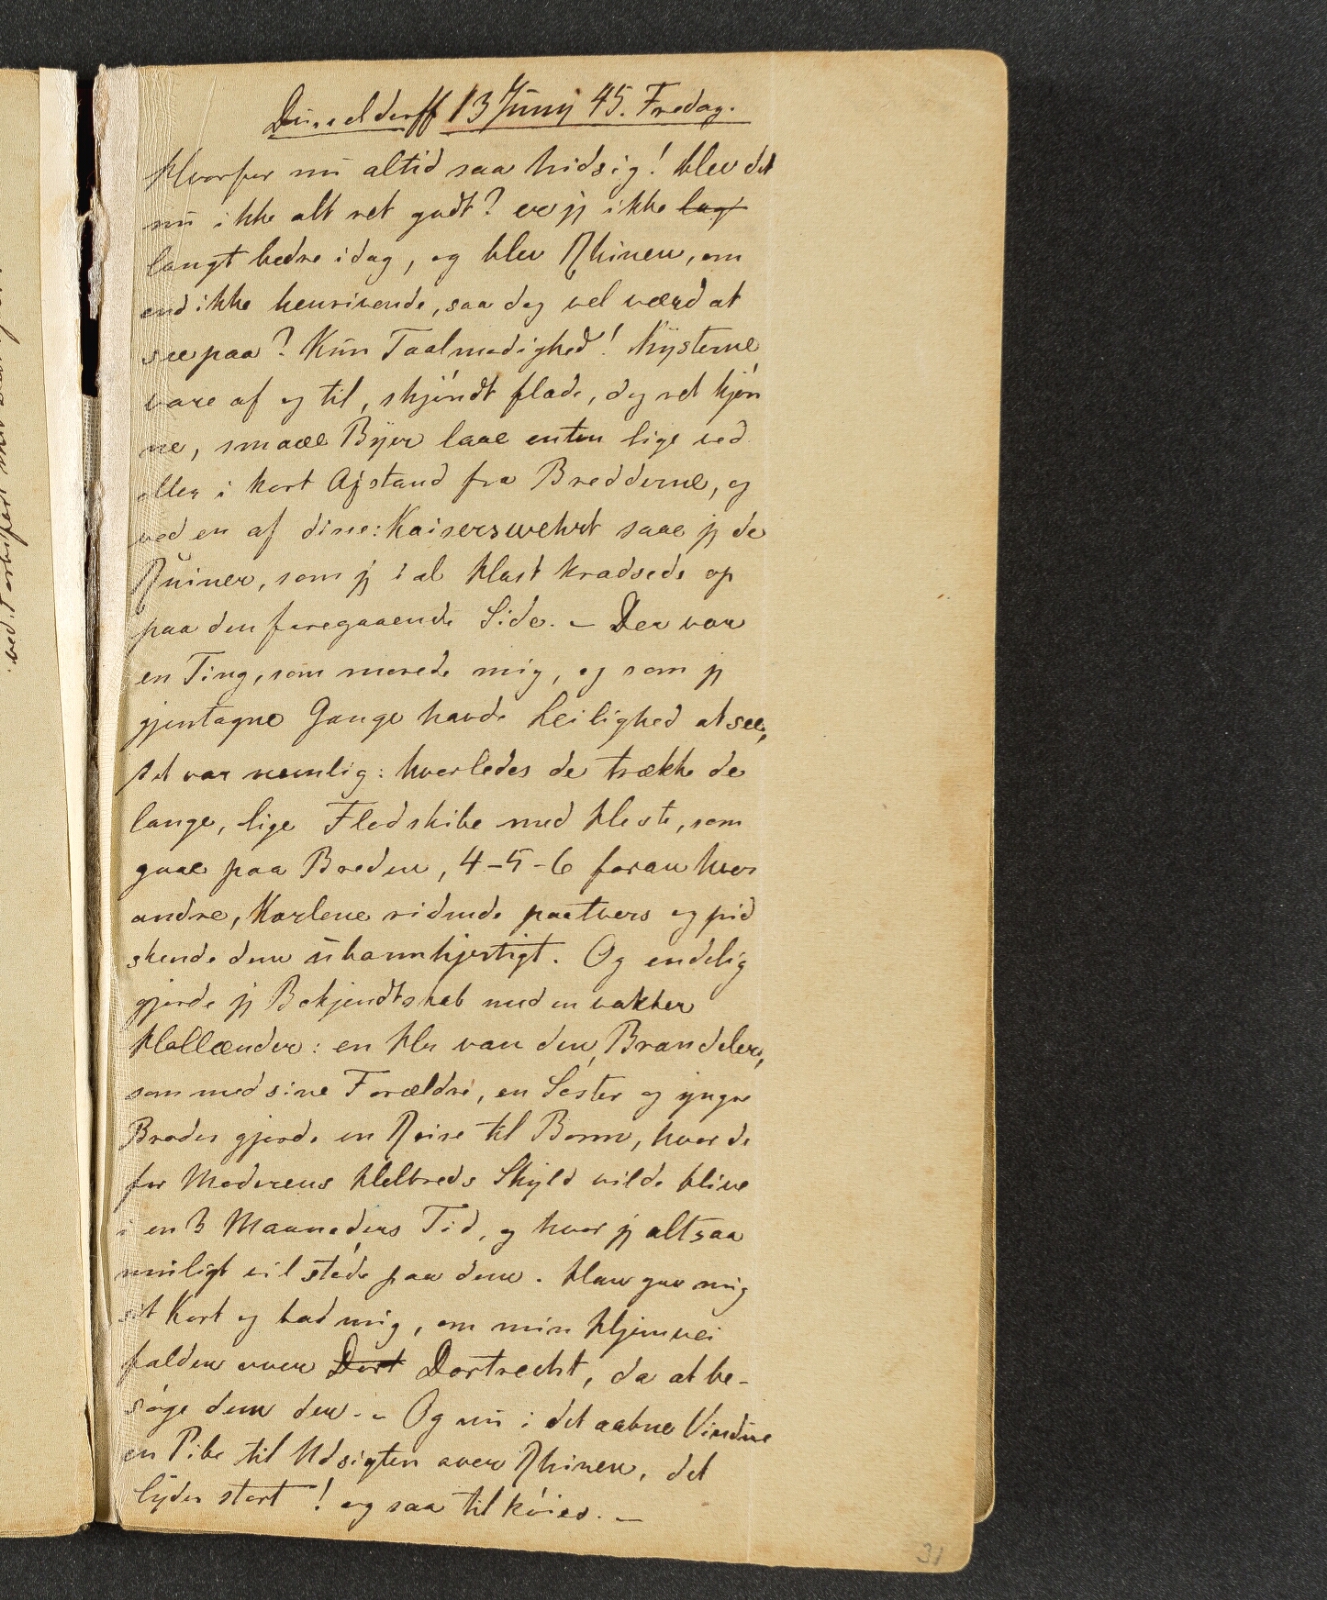 Düsseldorff 13 Juny 45. Fredag.
Hvorfor nu altid saa hidsig! blev det
nu ikke alt ret godt? er jeg ikke lagt
langt bedre idag, og blev Rhinen, om
end ikke henrivende, saa dog vel værd at
see paa? Kun Taalmodighed! Kysterne
vare af og til, skjöndt flade, dog ret kjön
ne, smaae Byer laae enten lige ved
eller i kort Afstand fra Bredderne, og
ved en af disse: Kaiserswehrt saae jeg de
Ruiner, som jeg i al Hast kradsede op
paa den foregaaende Side. – Der var
en Ting, som morede mig, og som jeg
gjentagne Gange havde Leilighed at see,
det var nemlig: hvorledes de trække de
lange, lige Flodskibe med Heste, som
gaae paa Breden, 4–5–6 foran hver
andre, Karlene ridende paatvers og pid
skende dem ubarmhjertigt. Og endelig
gjorde jeg Bekjendtskab med en vakker
Hollænder: en Hr van den Brandeler,
som med sine Forældre, en Söster og yngre
Broder gjorde en Reise til Bonn, hvor de
for Moderens Helbreds Skyld vilde blive
i en 3 Maaneders Tid, og hvor jeg altsaa
muligt vil stöde paa dem. Han gav mig
sit Kort og bad mig, om min Hjemvei
falder over Dort Dortrecht, da at be-
söge dem der. – Og nu i det aabne Vindue
en Pibe til Udsigten over Rhinen, det
lyder stort! og saa til köies. –
31